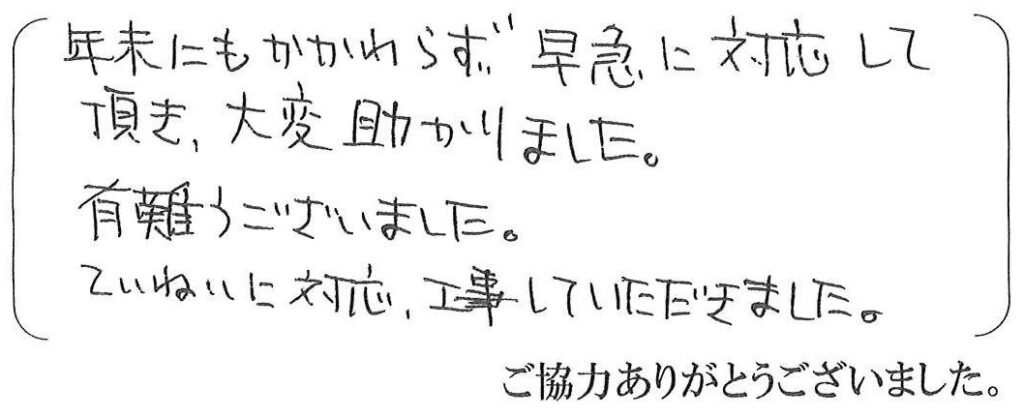 年末にもかかわらず早急に対応して
頂き、大変助かりました。
有難うございました。
ていねいに対応、工事していただきました。
ご協力ありがとうございました。